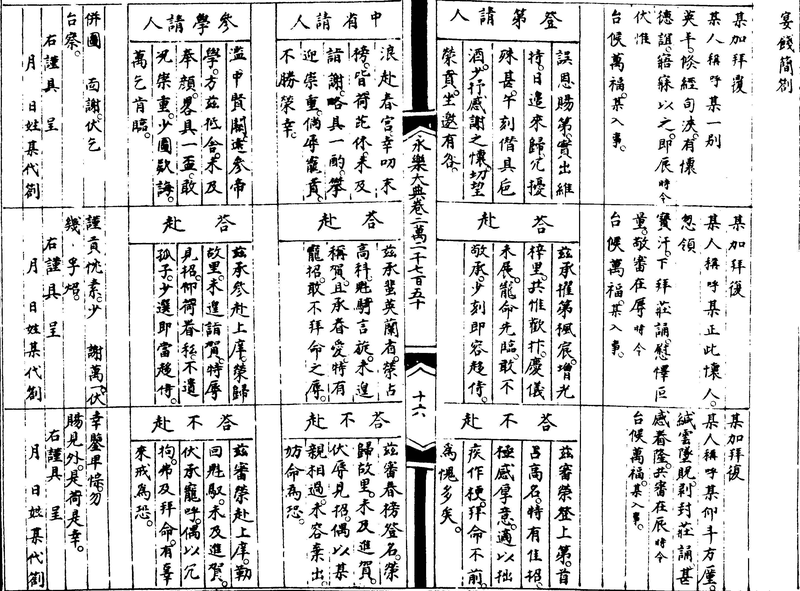 宴餞簡劄
某加拜覆
某人稱呼某一别
英丰倐經旬浹有懷
德誼寤寐以之即辰時令
伏惟
台候萬福某入事
某加拜復
某人稱呼某正此懷人
忽領
寳汗下拜莊誦慰懌叵
量敬審在辰時令
台候萬福某入事
某加拜復
某人稱呼某仰斗方厪
緘雲墜貺剥封莊誦甚
感眷隆共審在辰時令
台候萬福某入事
登第請人
誤恩賜第實出維
持日邉來歸冗擾
殊甚午刻借具卮
酒少抒感謝之懷切望
榮賁坐邀有咎
答赴
兹承擢第楓宸増光
梓里共惟歡抃慶儀
未展寵命先臨敢不
敬承少刻即容趍侍
答不赴
兹審榮登上第首
吕高名特有佳招
極感厚意適以拙
疾作梗拜命不前
爲愧多矣
永樂大典卷二萬二千七百五十
十六
中省請人
浪赴春宫幸叨末
榜皆荷芘休未及
詣謝略具一酌攀
迎崇重倘辱寵賁
不勝榮幸
答赴
兹承蜚英蘭省榮占
高科甡騎言旋未遑
稱賀且承眷愛特有
寵招敢不拜命之辱
答不赴
兹審春榜登名榮
歸故里未及進賀
伏辱見招偶以某
親相過來容棄出
妨命爲恐
參學請人
濫中賢關遠參帝
學方兹抵舍未及
奉顔畧具一盃敢
況崇重少圖欵誨
萬乞肯臨
答赴
兹承參赴上庠榮歸
故里未進詣賀特辱
見招仰荷眷私不遺
孤子少選即當趍侍
答不赴
兹審榮赴上庠勒
回甡馭未及進賀
伏承寵呼偶以冗
拘弗及拜命有辜
來戒爲恐
併圖 面謝伏乞
台察
右謹具 呈
月 日姓某代劄
謹賁忱素少 謝萬一伏
幾 孚炤
右謹具 呈
月 日姓某代劄
幸鑒畢悰勿
賜見外是荷是幸
右謹具 呈
月 日姓某代劄